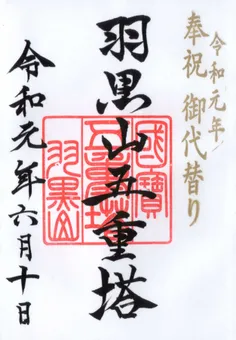 奉祝 御代替り
令和元年
羽黒山五重塔
國寶
五重塔
羽黒山
令和元年六月十日